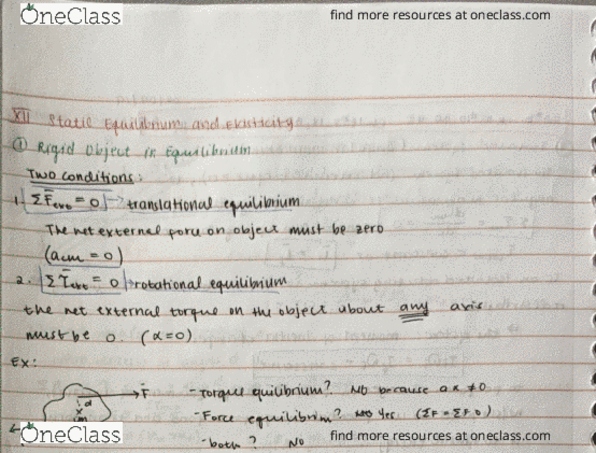 OneClass find more resources at oneclass.com
XII Static Equilibrium and Elasticity
① Rigid Object in Equilibrium
Two conditions:
1. ΣF̄ext = 0 → translational equilibrium
The net external force on object must be zero
(acm = 0)
2. Στ̄ext = 0 → rotational equilibrium
the net external torque on the object about any axis
must be 0. (α=0)
Ex:
F̄ - Torque quilibrium? No because α ≠0
d
x
cm - Force equilibrim? Yes (ΣF = ΣF 0)
- both? No
OneClass find more resources at oneclass.com